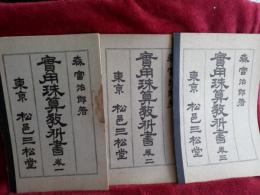 森富治郎著
實用珠算教科書 卷一
東京 松邑三松堂
森富治郎著
實用珠算教科書 卷二
東京 松邑三松堂
森富治郎著
實用珠算教科書 卷三
東京 松邑三松堂